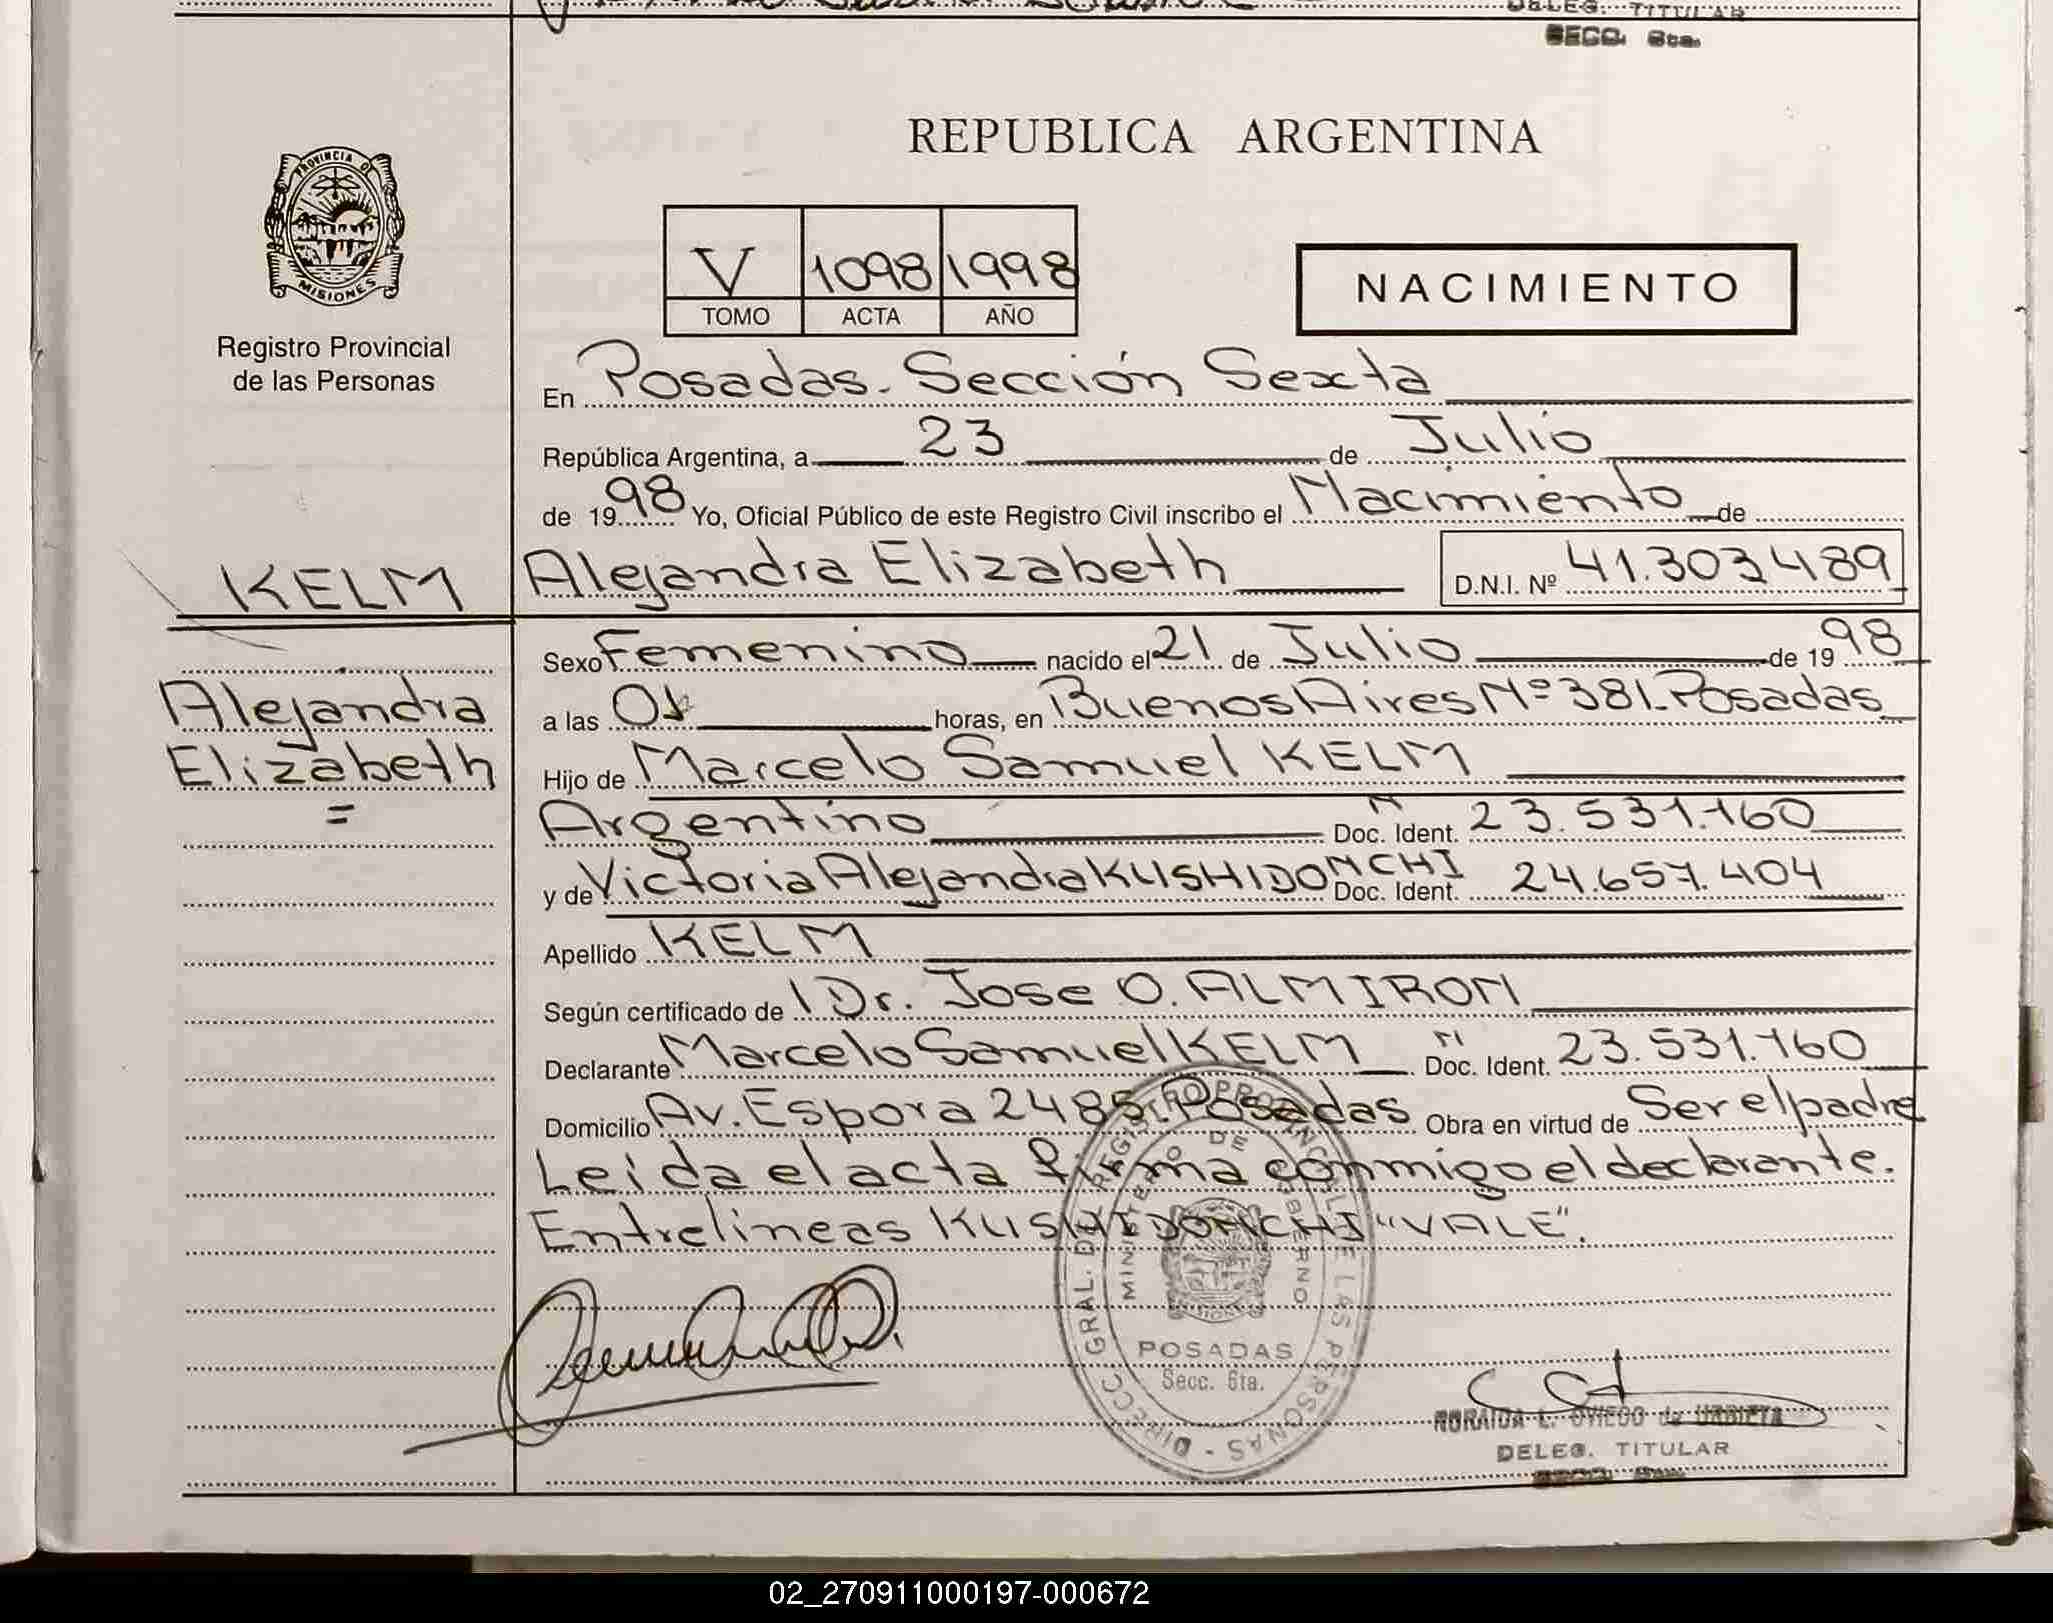 DELEG. TITULAR
SECC. 6ta.
PROVINCIA DE
MISIONES
Registro Provincial
de las Personas
REPUBLICA ARGENTINA
V 1098 1998
TOMO ACTA AÑO
NACIMIENTO
En Posadas. Sección Sexta
República Argentina, a 23 de Julio
de 1998 Yo, Oficial Público de este Registro Civil inscribo el Nacimiento de
KELM
Alejandra Elizabeth D.N.I. Nº 41.303.489
Alejandra
Elizabeth
=
Sexo Femenino nacido el 21 de Julio de 1998
a las 01 horas, en Buenos Aires Nº 381. Posadas
Hijo de Marcelo Samuel KELM
Argentino N Doc. Ident. 23.531.160
y de Victoria Alejandra KUSHIDONCHI Doc. Ident. 24.657.404
Apellido KELM
Según certificado de Dr. Jose O. ALMIRON
Declarante Marcelo Samuel KELM N Doc. Ident. 23.531.160
Domicilio Av. Espora 2485. Posadas Obra en virtud de Ser el padre
Leída el acta firma conmigo el declarante.
Entrelineas KUSHIDONCHI "VALE".
DIRECC. GRAL. DEL REGISTRO PROVINCIAL DE LAS PERSONAS
MINISTERIO DE GOBIERNO
POSADAS
Secc. 6ta.
NORAIDA L. OVIEDO de URBIETA
DELEG. TITULAR
SECC. 6ta.
02_270911000197-000672